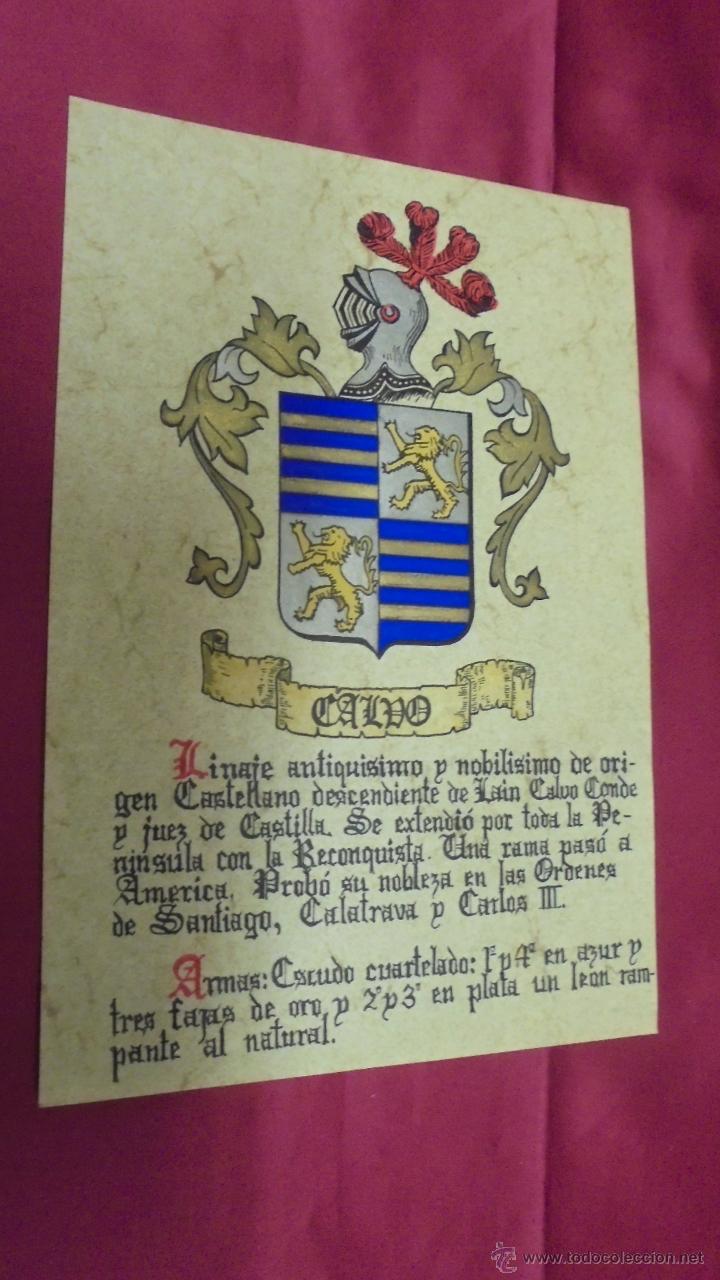 CALVO
Linaje antiquisimo y nobilisimo de ori-
gen Castellano descendiente de Lain Calvo Conde
y juez de Castilla. Se extendió por toda la Pe-
ninsula con la Reconquista. Una rama pasó a
America. Probó su nobleza en las Ordenes
de Santiago, Calatrava y Carlos III.
Armas: Escudo cuartelado: 1º y 4º en azur y
tres fajas de oro y 2º y 3º en plata un león ram-
pante al natural.
www.todocoleccion.net